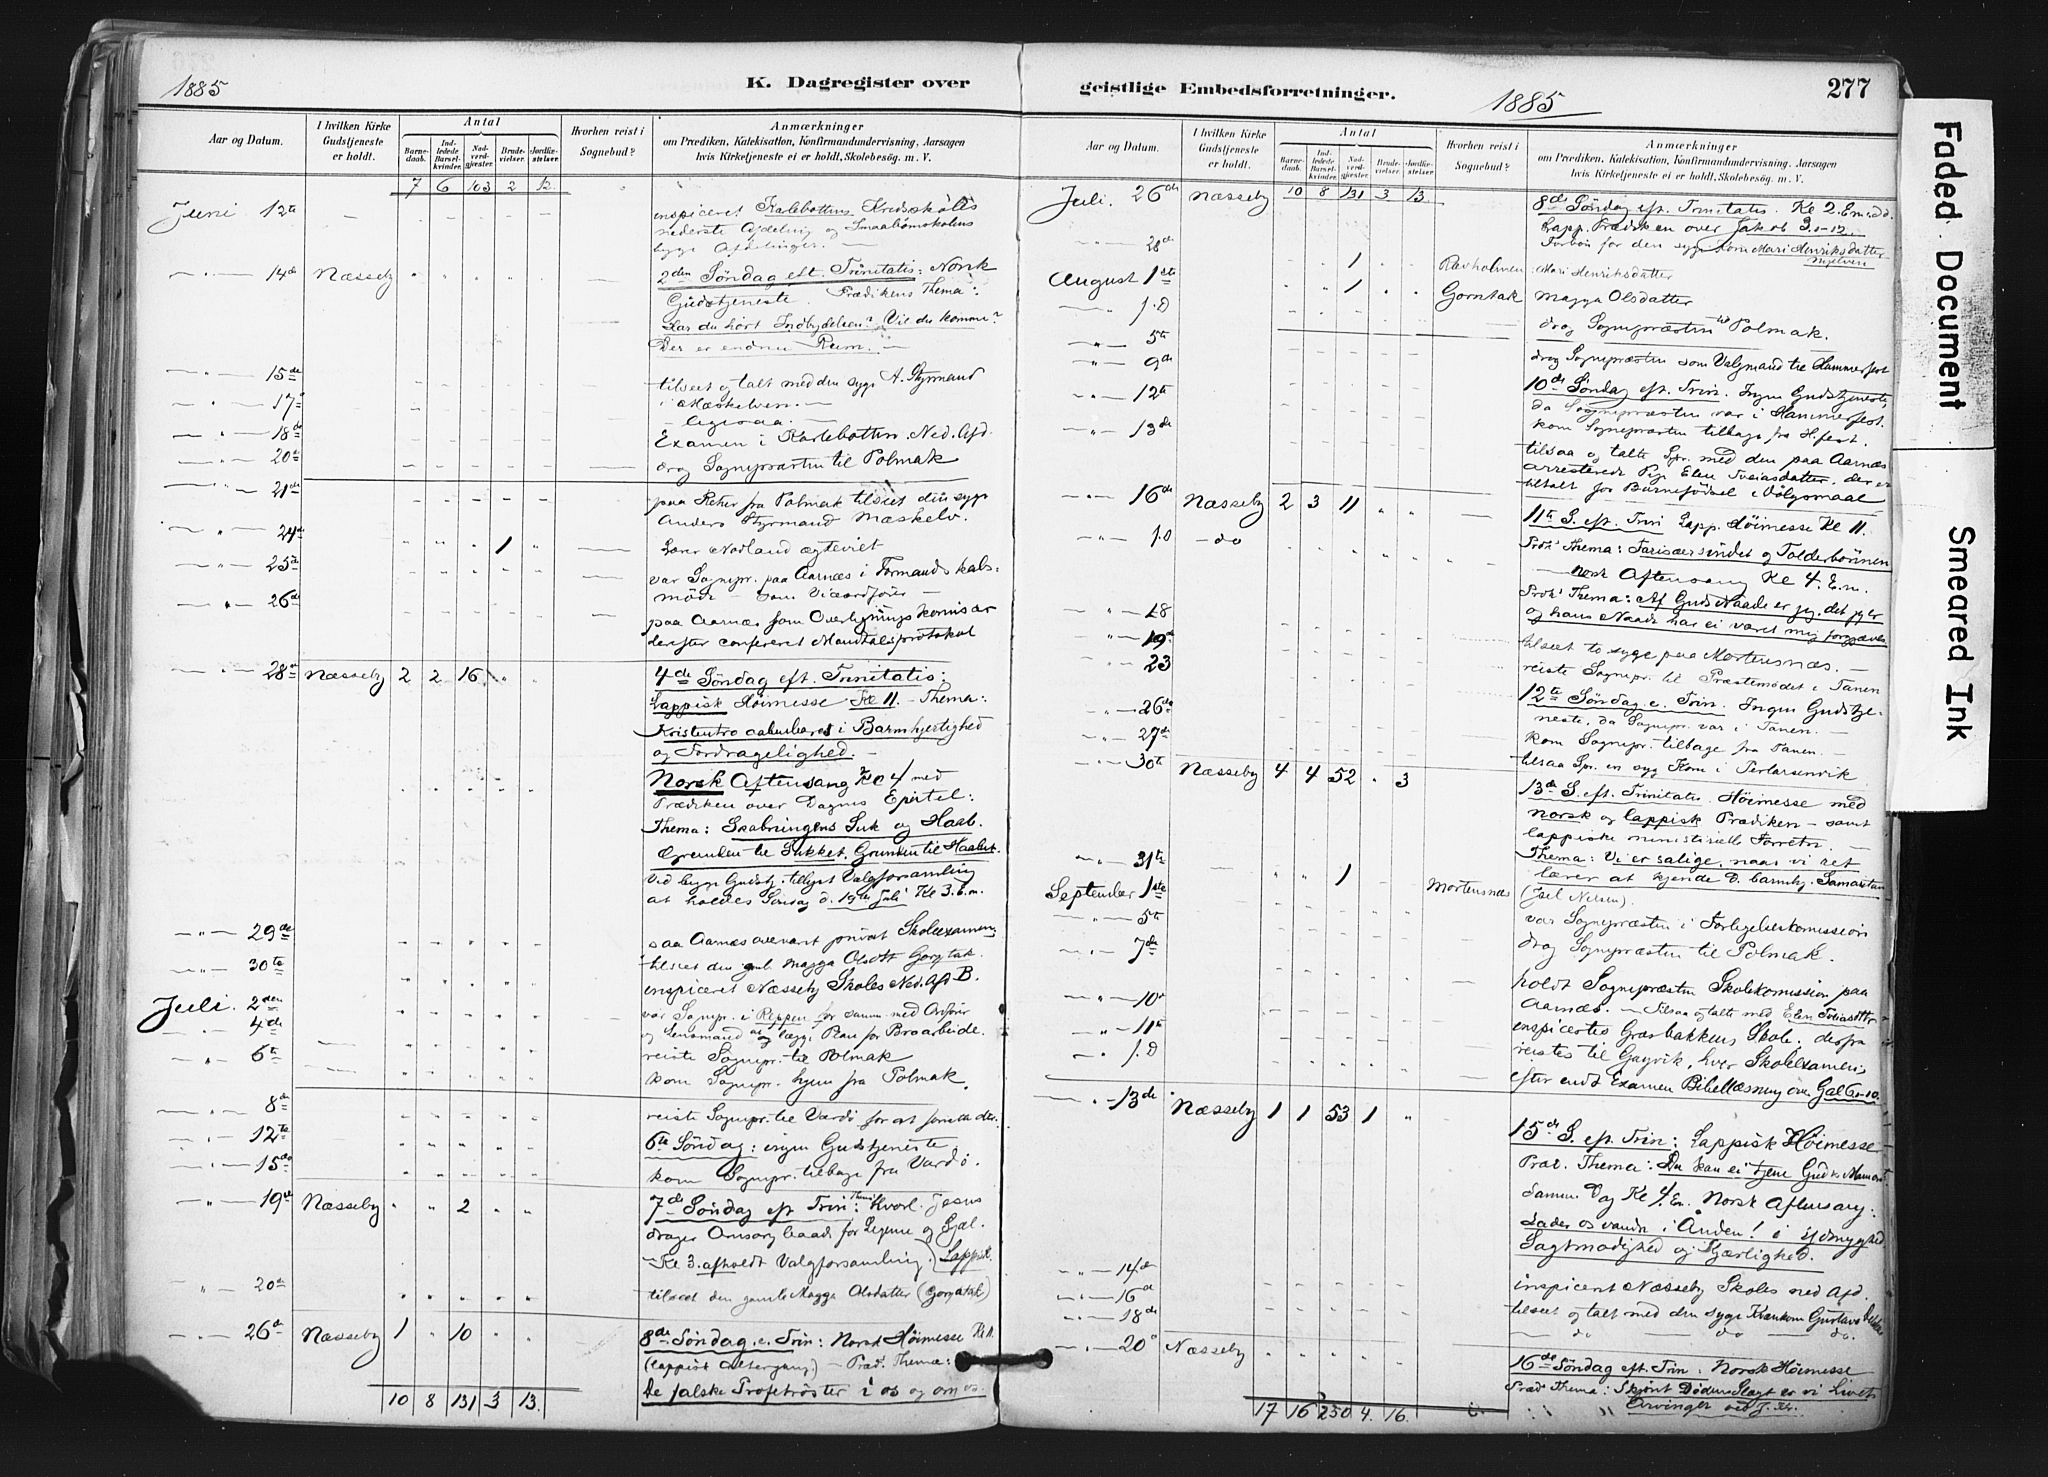 1885
K. Dagregister over
Aar og Datum.
I hvilken Kirke Gudstjeneste er holdt.
Antal
Barnedaab.
Indledede Barselkvinder.
Nadverdgjester.
Brudevielser.
Jordfæstelser
Hvorhen reist i Sognebud?
Anmærkninger
om Prædiken, Katekisation, Konfirmandundervisning, Aarsagen
hvis Kirketjeneste ei er holdt, Skolebesög. m. V.
7 6 103 2 12.
Juni 12te inspiceret Karlebottens Kredsskoles
nederste Afdeling og Smaabørnskolens
begge Afdelinger.
14de Næsseby 2den Søndag eft. Trinitatis: Norsk
Gudstjeneste. Prædikens Thema:
Har du hørt Indbydelsen? Vil du komme?
Der er endnu Rum.
15de tilseet og talt med den syge A. Styrmand
i Mæskelven.
17 ligesaa.
18de Examen i Karlebotten. Ned. Afd.
20de drog Sognepræsten til Polmak
21de paa Reiser fra Polmak tilseet den syge
Anders Styrmand Mæskelv.
24de 1 Nodland ægteviet
25de var Sognepr. paa Aarnæs i Formandskabs-
møde som Viceordfører
26de paa Aarnæs som Overligningskomisær
derefter confereret Mandtalsprotokol
28de Næsseby 2 2 16 4de Søndag eft. Trinitatis:
Lappisk Høimesse Kl 11. Thema:
Kristentro aabenbares i Barmhjertighed
og Fordragelighed.
Norsk Aftensang Kl 4 med
Prædiken over Dagens Epistel:
Thema: Skabningens Suk og Haab.
Grunden til Sukket. Grunden til Haabet.
Ved begge Gudstj. tillyst Valgforsamling
at holdes Søndag d. 19de Juli Kl 3. E.m.
29de paa Aarnæs overværet privat Skoleexamen
30te tilseet den gml. Magga Olsdtr Gorgtak.
Juli. 2den inspiceret Næsseby Skoles Ned. Afd B.
4de var Sognepr. i Reppen for samm. med Ordfører
og Lensmand at lægge Plan for Broarbeide.
6te reiste Sognepr. til Polmak
kom Sognepr. hjem fra Polmak.
8de reiste Sognepr. til Vardö for at
12te 6te Søndag: ingen Gudstjeneste
15de kom Sognepr. tilbage fra Vardö.
19de Næsseby 2 7de Søndag eft Trin: Thema: Hvorl. Jesus
drager Omsorg baade for Legeme og Sjæl.
Kl 3. afholdt Valgforsamling. (Lappisk.
20de tilseet den gamle Magga Olsdatter (Gorgtak)
26de Næsseby 1 10 8de Søndag e. Trin: Norsk Høimesse Kl 11.
(lappisk Altergang.) Præd. Thema:
De falske Profetrøster i os og om os.
10 8 131 3 13.
geistlige Embedsforretninger.
1885
277
Aar og Datum.
I hvilken Kirke Gudstjeneste er holdt.
Antal
Barnedaab.
Indledede Barselkvinder.
Nadverdgjester.
Brudevielser.
Jordfæstelser
Hvorhen reist i Sognebud?
Anmærkninger
om Prædiken, Katekisation, Konfirmandundervisning, Aarsagen
hvis Kirketjeneste ei er holdt, Skolebesög. m. V.
Juli. 26de Næsseby 10 8 131 3 13. 8de Søndag eft. Trinitatis. Kl 2. Em.
Lapp. Prædiken over Jakob 3. 1-12.
Forbøn for den syge Kone Mari Henriksdatter
28de 1 Rævholmen Mari Henriksdatter
August 1ste 1 Gorntak Magga Olsdatter
f. D drog Sognepræsten til Polmak.
5te drog Sognepræsten som Valgmand til Hammerfest
9de 10de Søndag eft. Trin. Ingen Gudstjeneste,
da Sognepræsten var i Hammerfest.
12te kom Sognepræsten tilbage fra H.fest.
13de tilsaa og talte Spr. med den paa Aarnæs
arresterede Pige Elen Tobiasdatter, der er
tiltalt for Barnefødsel i Dølgsmaal
16de Næsseby 2 3 11 11te S. eft. Trin Lapp. Høimesse Kl 11.
f. D do Præd. Thema: Farisæersindet og Tolderbønnen
norsk Aftensang Kl 4. E.m.
Præd. Thema: Af Guds Naade er jeg, det jeg er
og hans Naade har ei været mig forgjæves
18 tilseet to syge paa Mortensnæs.
19de reiste Sognepr. til Præstemødet i Tanen
23 12te Søndag e. Trin. Ingen Gudstje-
neste, da Sognepr. var i Tanen.
26de kom Sognepr. tilbage fra Tanen.
27de tilsaa Spr. en syg Kone i
30te Næsseby 4 4 52 3 13de S. eft. Trinitatis. Høimesse med
norsk og lappisk Prædiken - samt
lappiske ministerielle Forretn.
Thema: Vi er salige, naar vi ret
lærer at kjende d. barmhj. Samaritan
31te 1 Mortensnæs (Joel Nilsen).
September 1ste var Sognepræsten i Forligelseskomission
5te drog Sognepræsten til Polmak.
7de holdt Sognepræsten Skolekomission paa
Aarnæs. Tilsaa og talte med Elen Tobiasdtr
10de inspicertes Græsbakkens Skole. derfra
11te reistes til Gagvik, hvor Skolexamen.
f. D efter endt Examen Bibellæsning over Gal 6 1-10
13de Næsseby 1 1 53 1 15de S. eft. Trin: Lappisk Høimesse
Præd. Thema: Du kan ei tjene Gud & Mamon
Samme Dag Kl 4. Em. Norsk Aftensang:
Lader os vandre i Ånden! i Ydmyghed
Sagtmodighed og Kjærlighed.
14de inspiceret Næsseby Skoles ned Afd.
16de tilseet og talt med den syge Gustava
18de do do do.
20de Næsseby 16de Søndag eft. Trin. Norsk Høimesse
Præd Thema: Skjønt Dødens Slægt er vi Livets
Arvinger ved J. Kr.
17 16 250 4. 16.
Faded Document
Smeared Ink